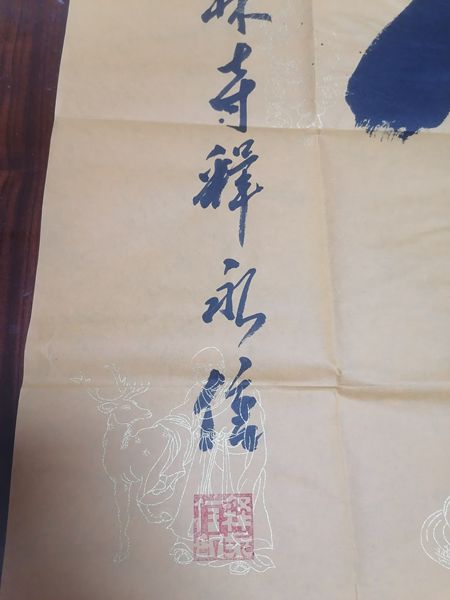 林寺释永信